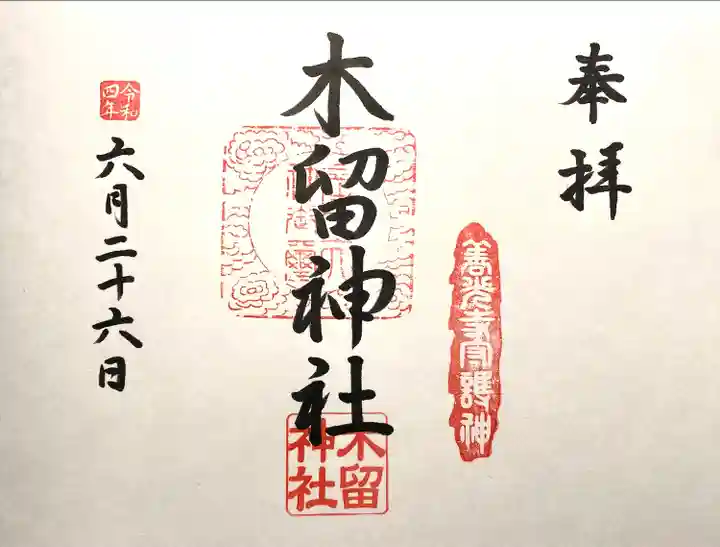 奉拝
善光寺守護神
木留神社
木留神社
令和四年
六月二十六日